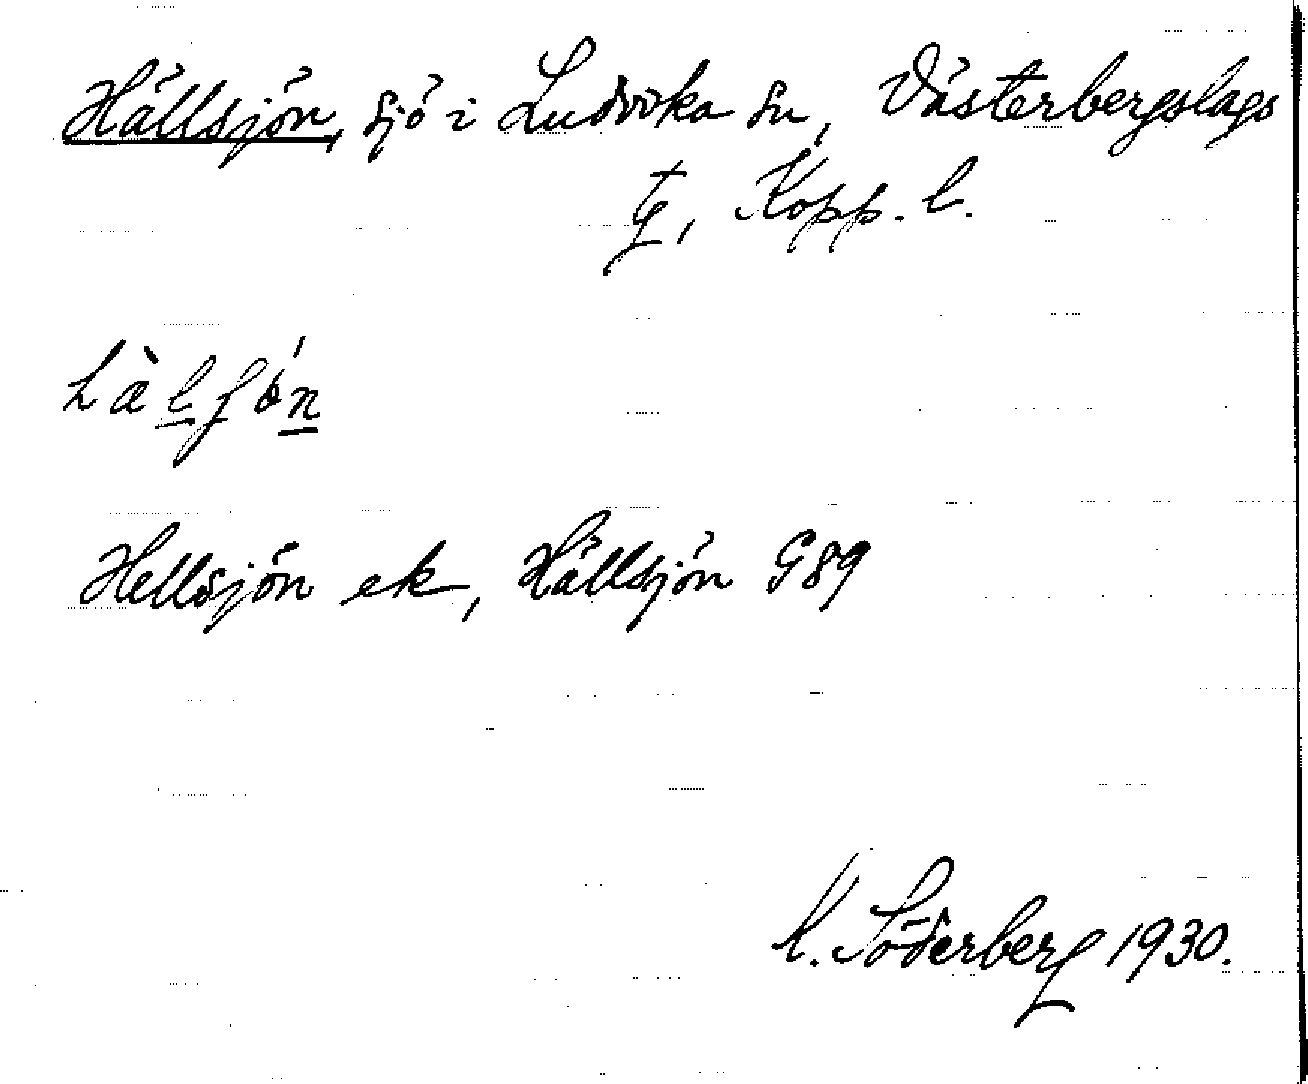 Hällsjön, sjö i Ludvika sn, Västerbergslags
tg, Kopp. l.
hàlʃǿn
Hellsjön ek, Hällsjön G89
K. Söderberg 1930.